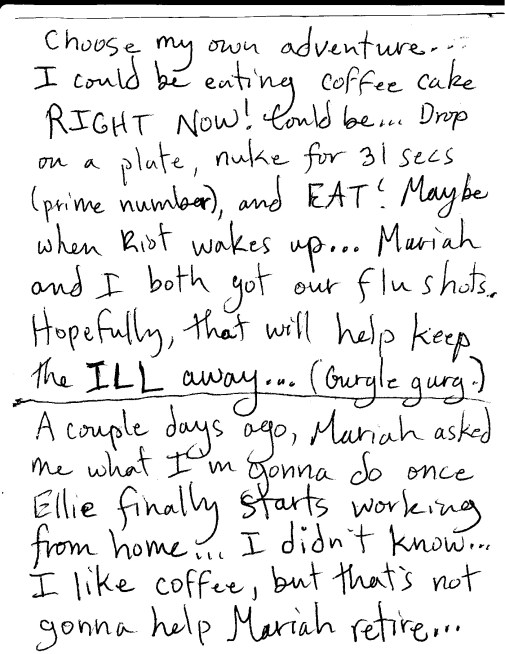 Choose my own adventure...
I could be eating coffee cake
RIGHT NOW! Could be... Drop
on a plate, nuke for 31 secs
(prime number), and EAT! Maybe
when Riot wakes up... Mariah
and I both got our flu shots.
Hopefully, that will help keep
the ILL away... (Gurgle gurg.)
A couple days ago, Mariah asked
me what I'm gonna do once
Ellie finally starts working
from home... I didn't know...
I like coffee, but that's not
gonna help Mariah retire...